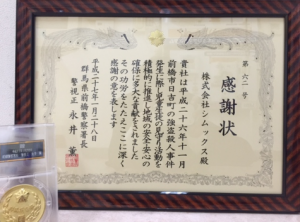 第六二号
感謝状
株式会社シムックス殿
貴社は平成二十六年十一月
前橋市日吉町の強盗殺人事件
発生に際し児童生徒の見守り活動を
積極的に推進し地域の安全・安心の
確保に多大な貢献をされました
その功労をたたえここに深く
感謝の意を表します
平成二十七年一月二十八日
群馬県前橋警察署長
警視正 永井 薫